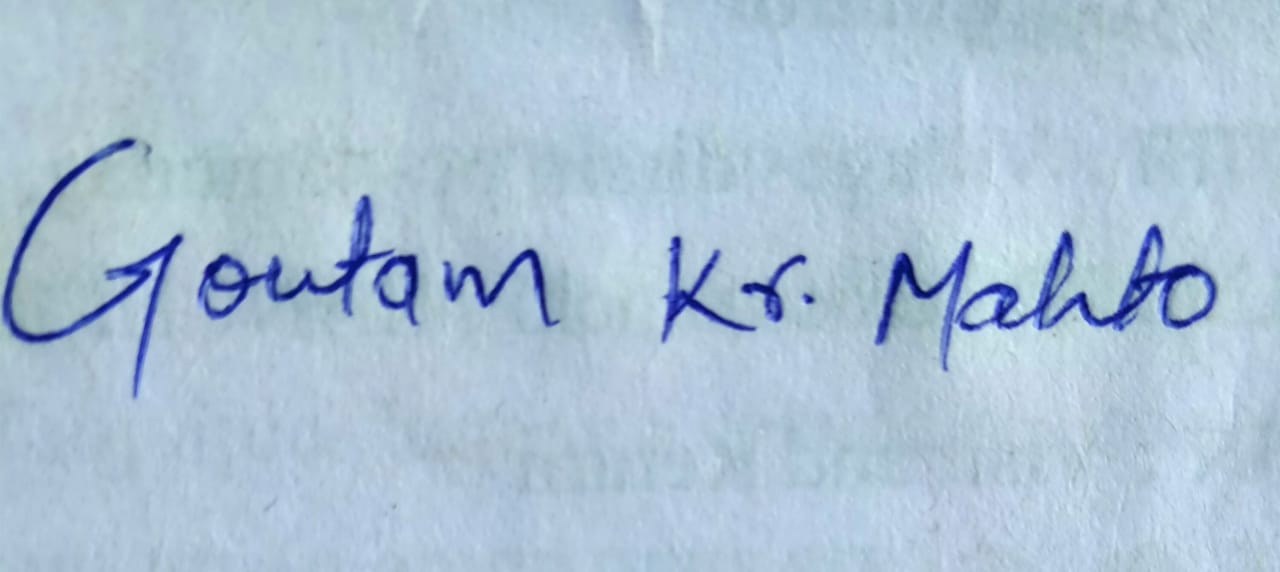 Goutam Kr. Mahto